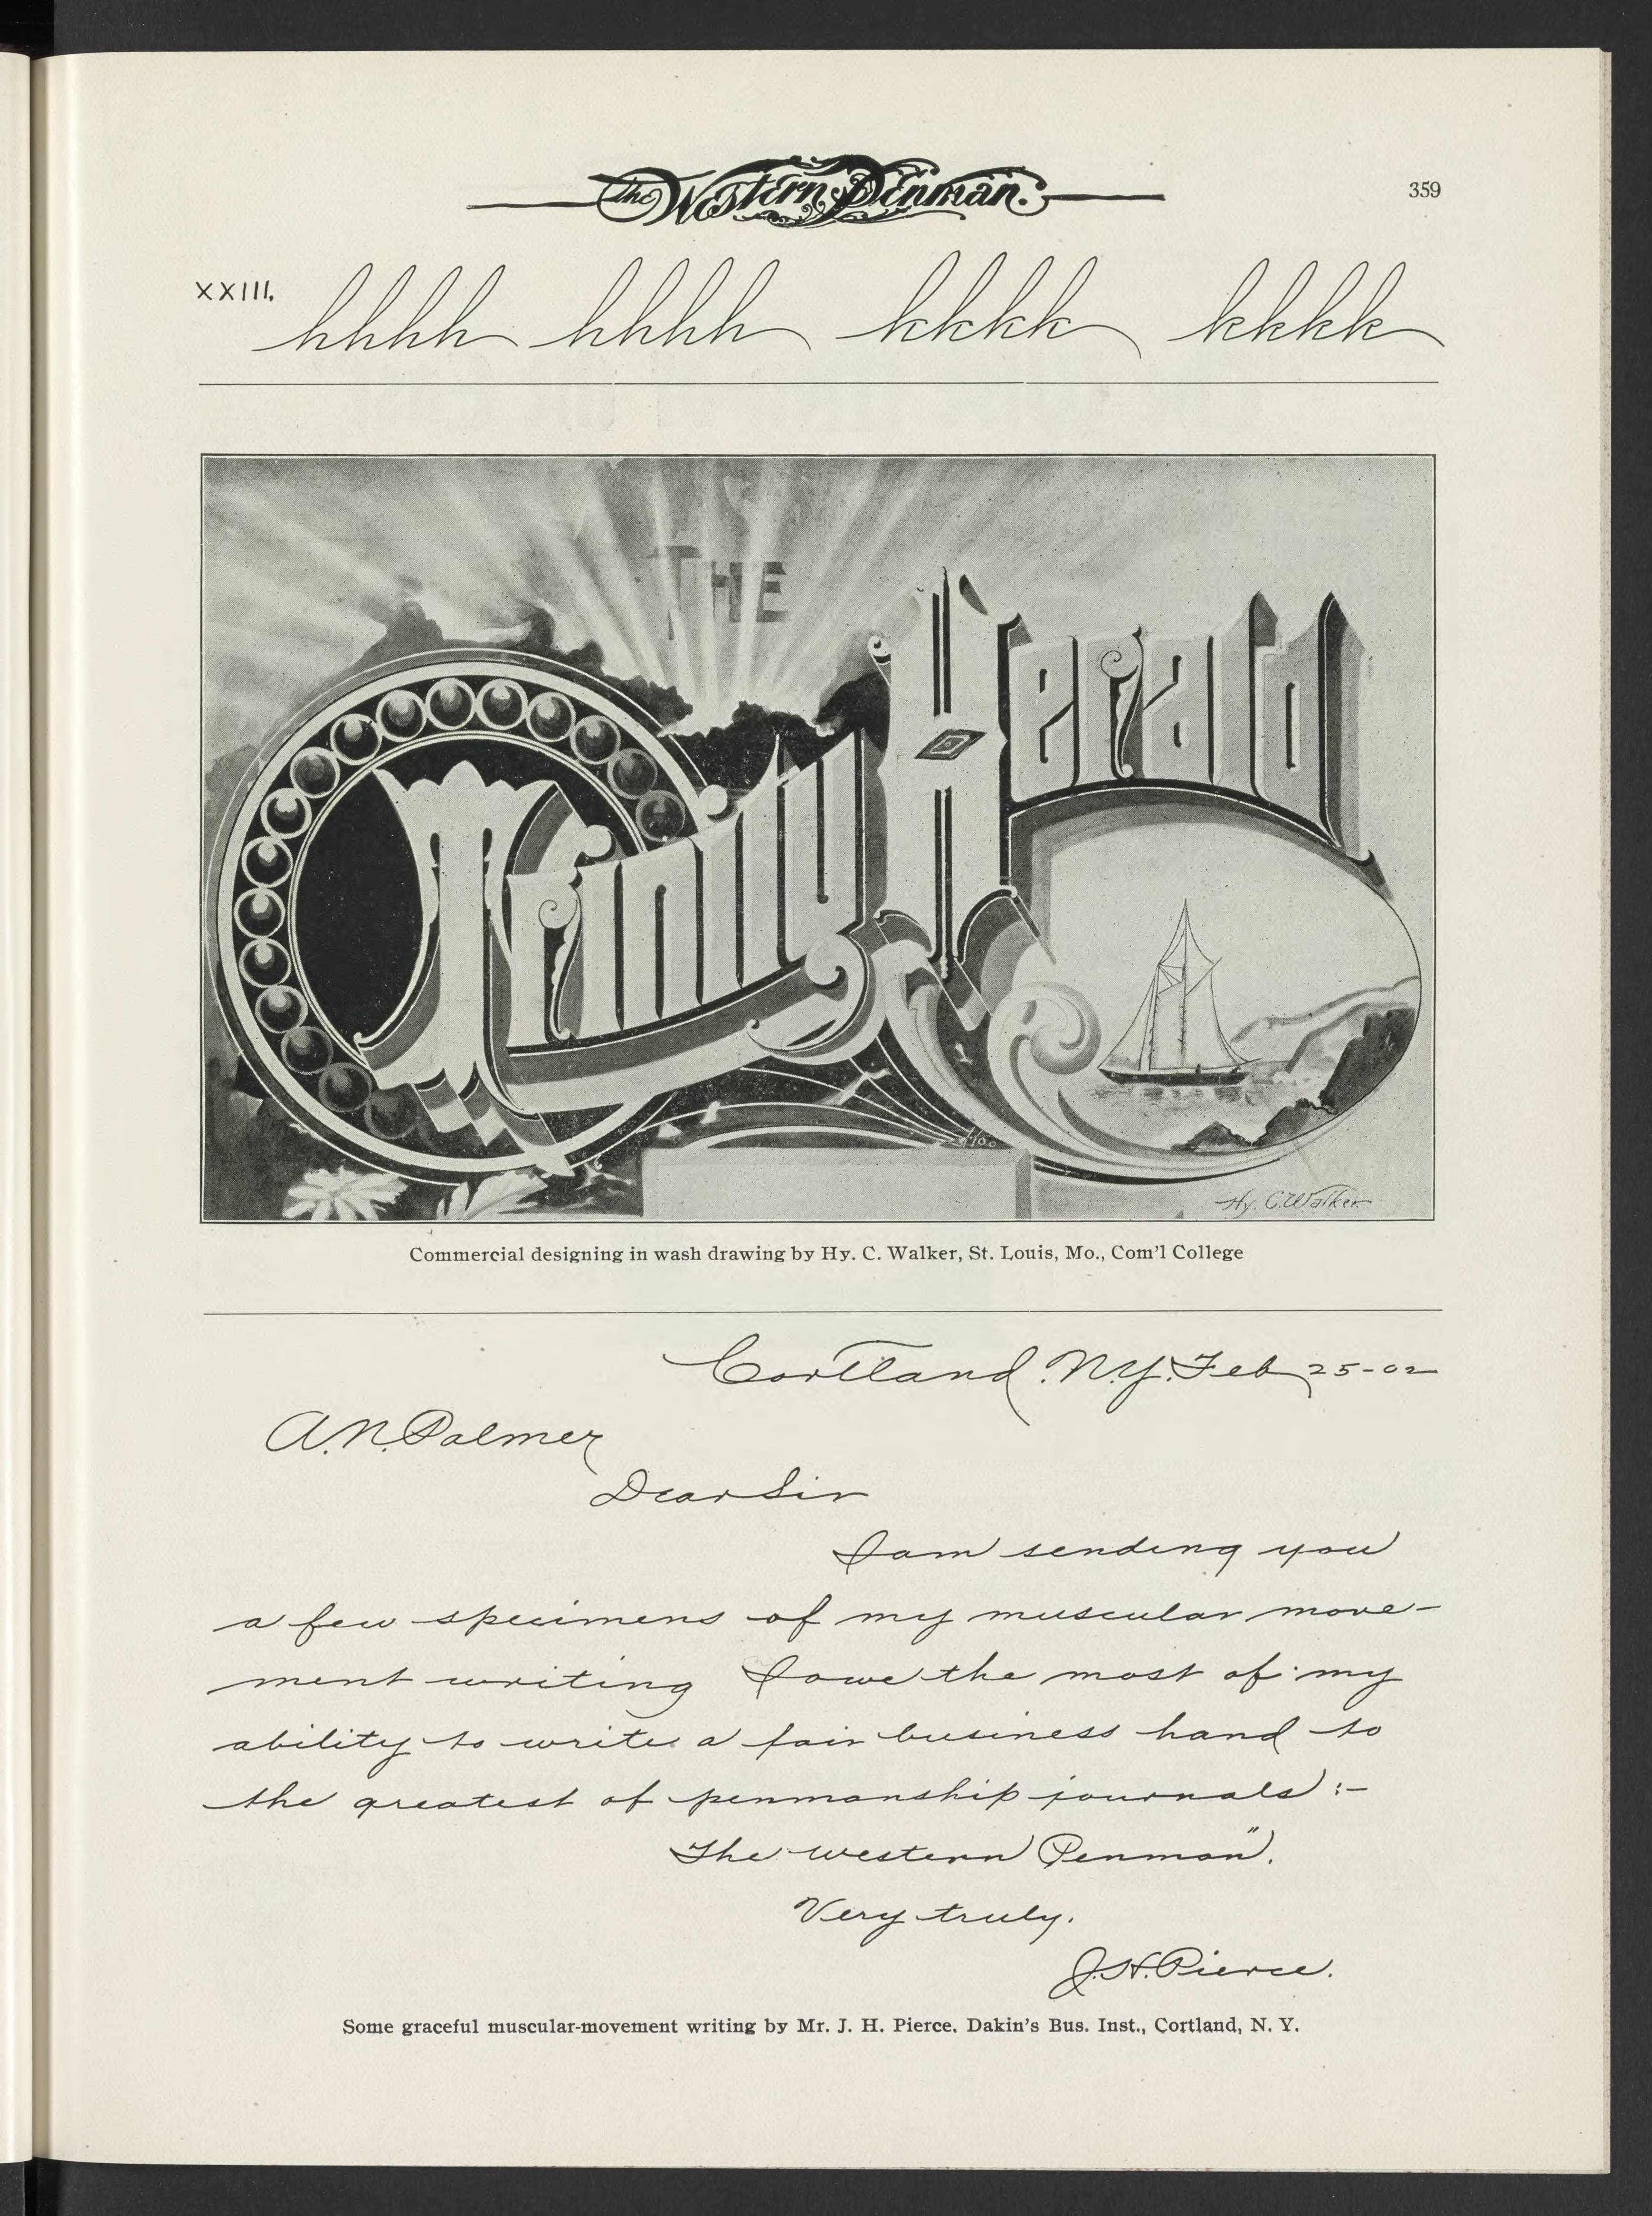 The Western Penman.
359
XXIII.
hhhh hhhh kkkk kkkk
THE
Trinity Herald
Hy. C. Walker
Commercial designing in wash drawing by Hy. C. Walker, St. Louis, Mo., Com'l College
Cortland. N.Y. Feb 25-02
A. N. Palmer
Dear Sir
I am sending you
a few specimens of my muscular move-
ment writing I owe the most of my
ability to write a fair business hand to
the greatest of penmanship journals:-
The Western Penman".
Very truly.
J. H. Pierce.
Some graceful muscular-movement writing by Mr. J. H. Pierce, Dakin's Bus. Inst., Cortland, N. Y.